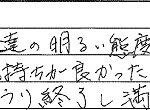 達の明るい態度
持ちが良かった
うり終了し満